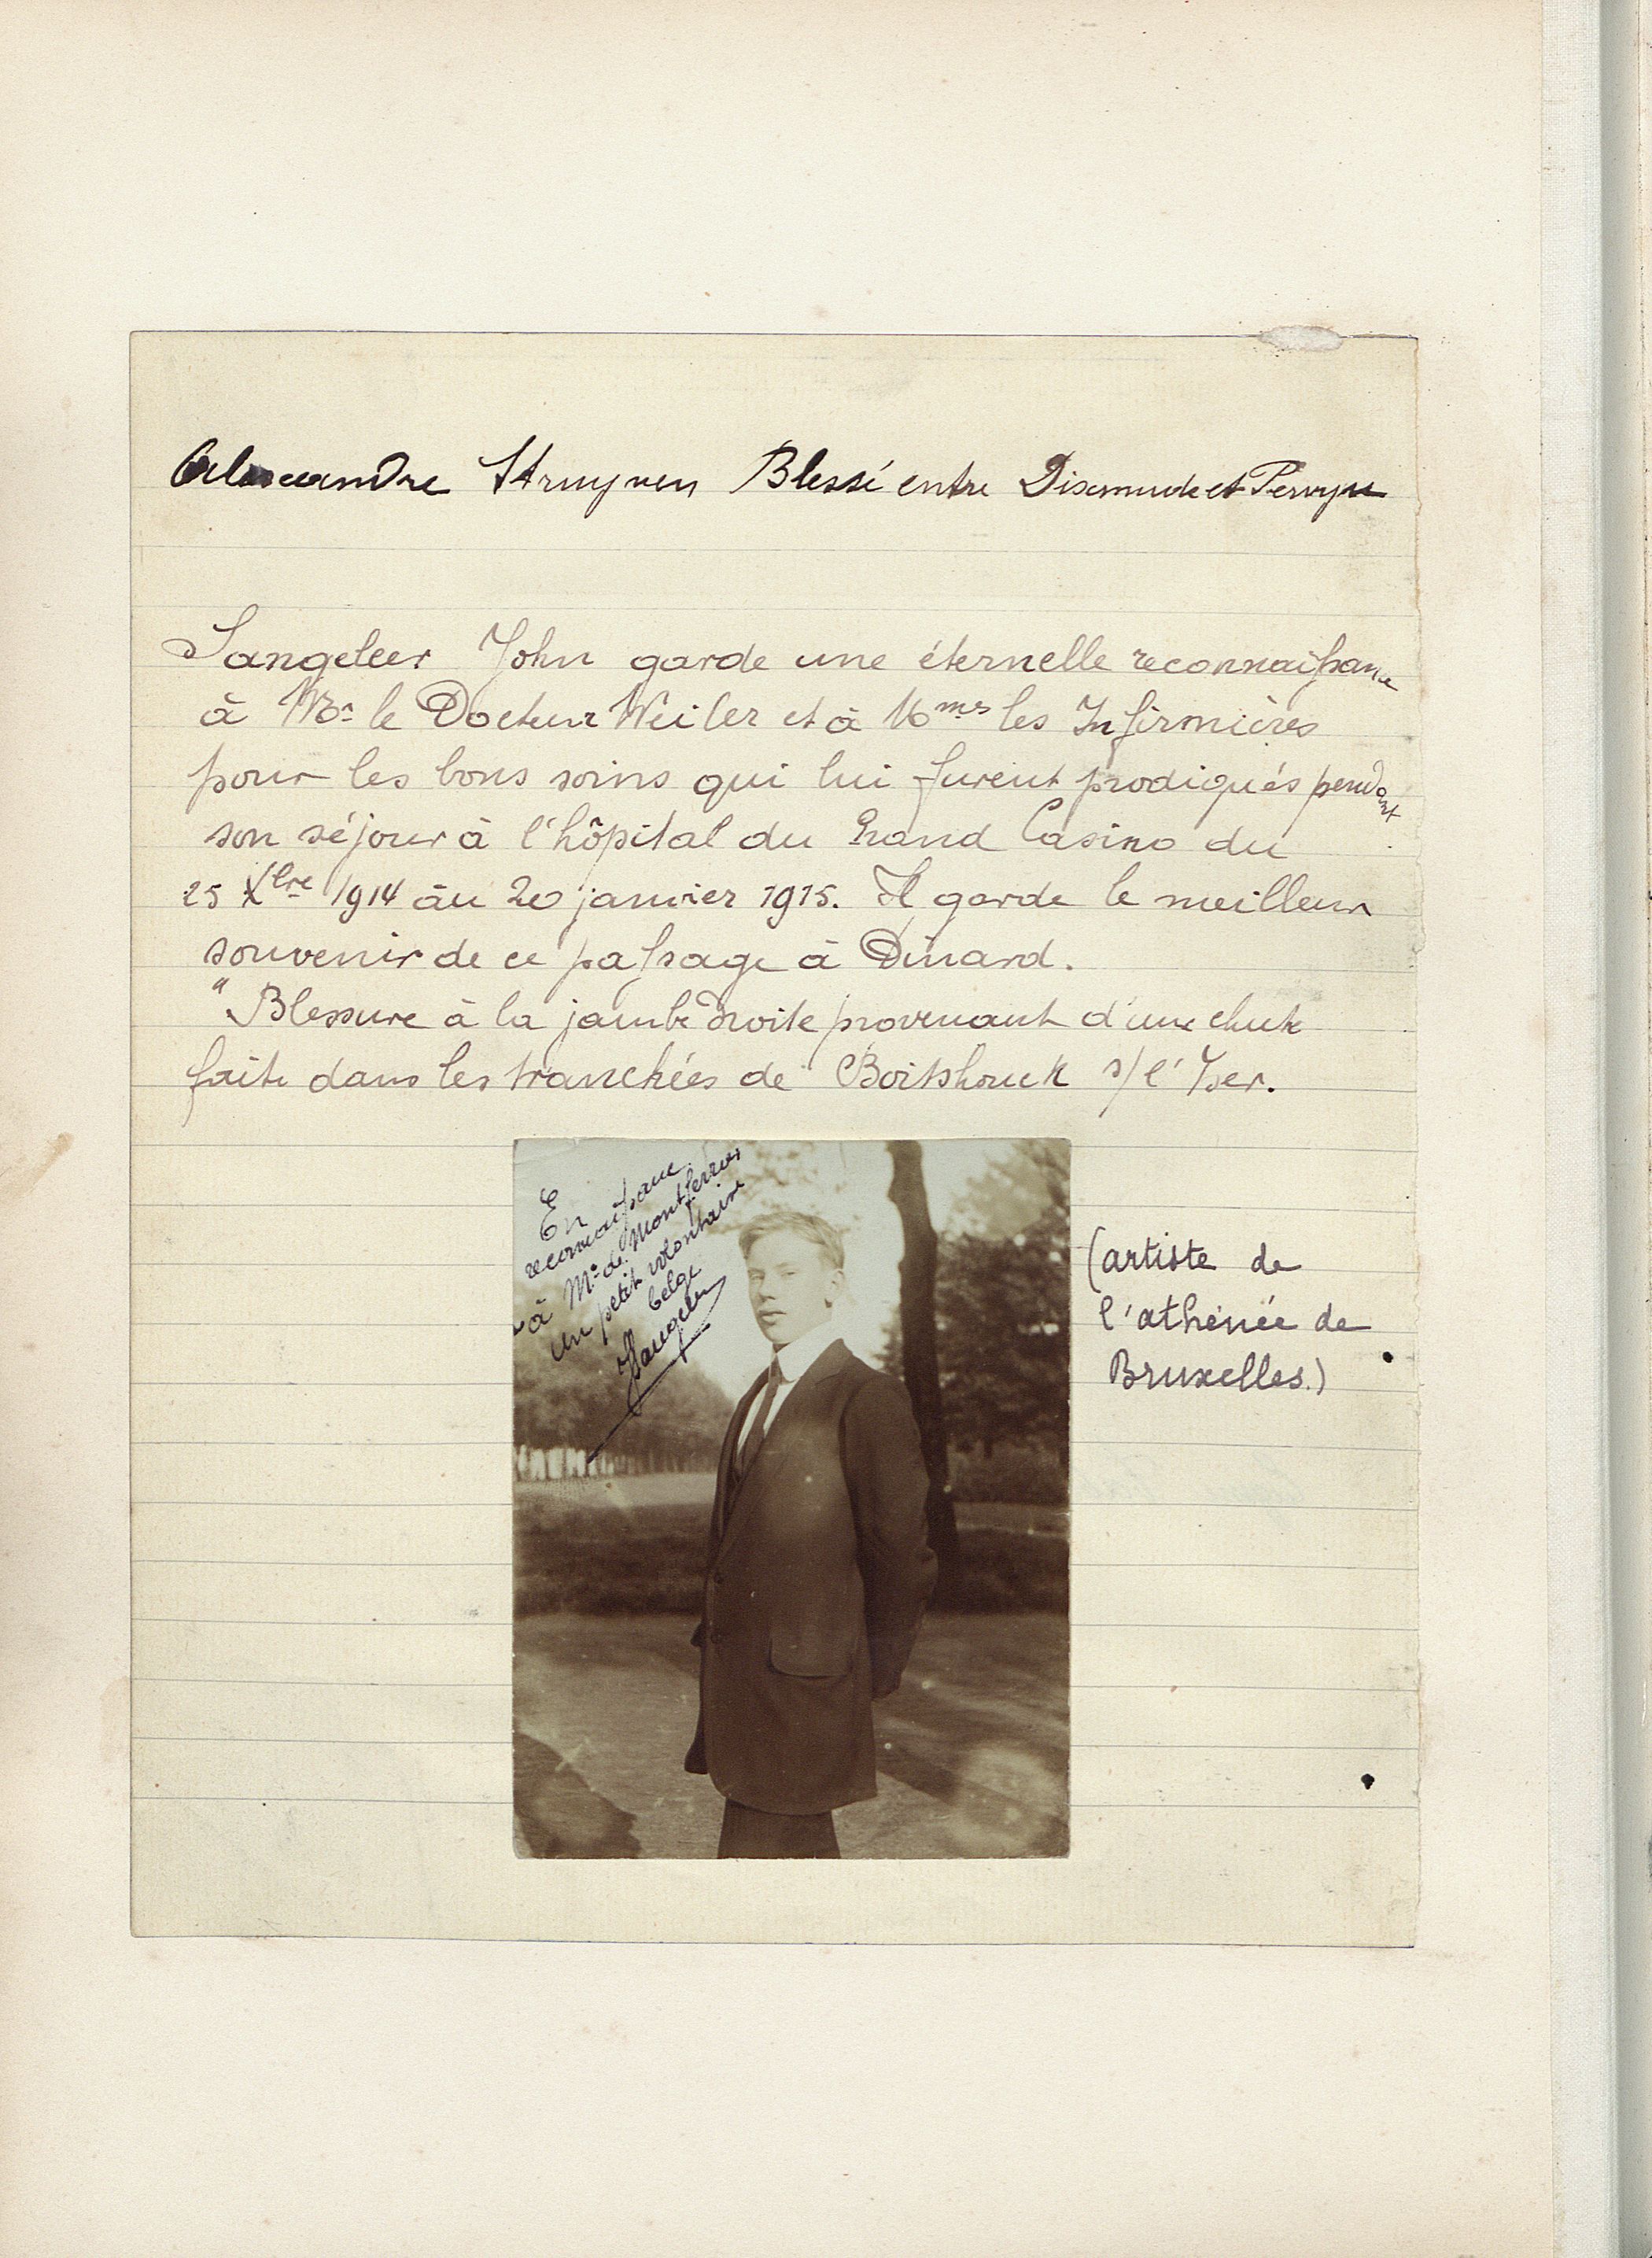 Alexandre Struyven Blessé entre Dixmude et Pervyse
Sangeleer John garde une éternelle reconnaissance
à Mr le Docteur Weiler et à Mmes les Infirmières
pour les bons soins qui lui furent prodigués pendant
son séjour à l'hôpital du Grand Casino du
25 Xbre 1914 au 20 janvier 1915. Il garde le meilleur
souvenir de ce passage à Dinard.
"Blessure à la jambe droite provenant d'une chute
faite dans les tranchées de Boitshouck s/l'Yser.
En
reconnaissance
à Mr de Montferrier
un petit volontaire
belge
(artiste de
l'athénée de
Bruxelles.)